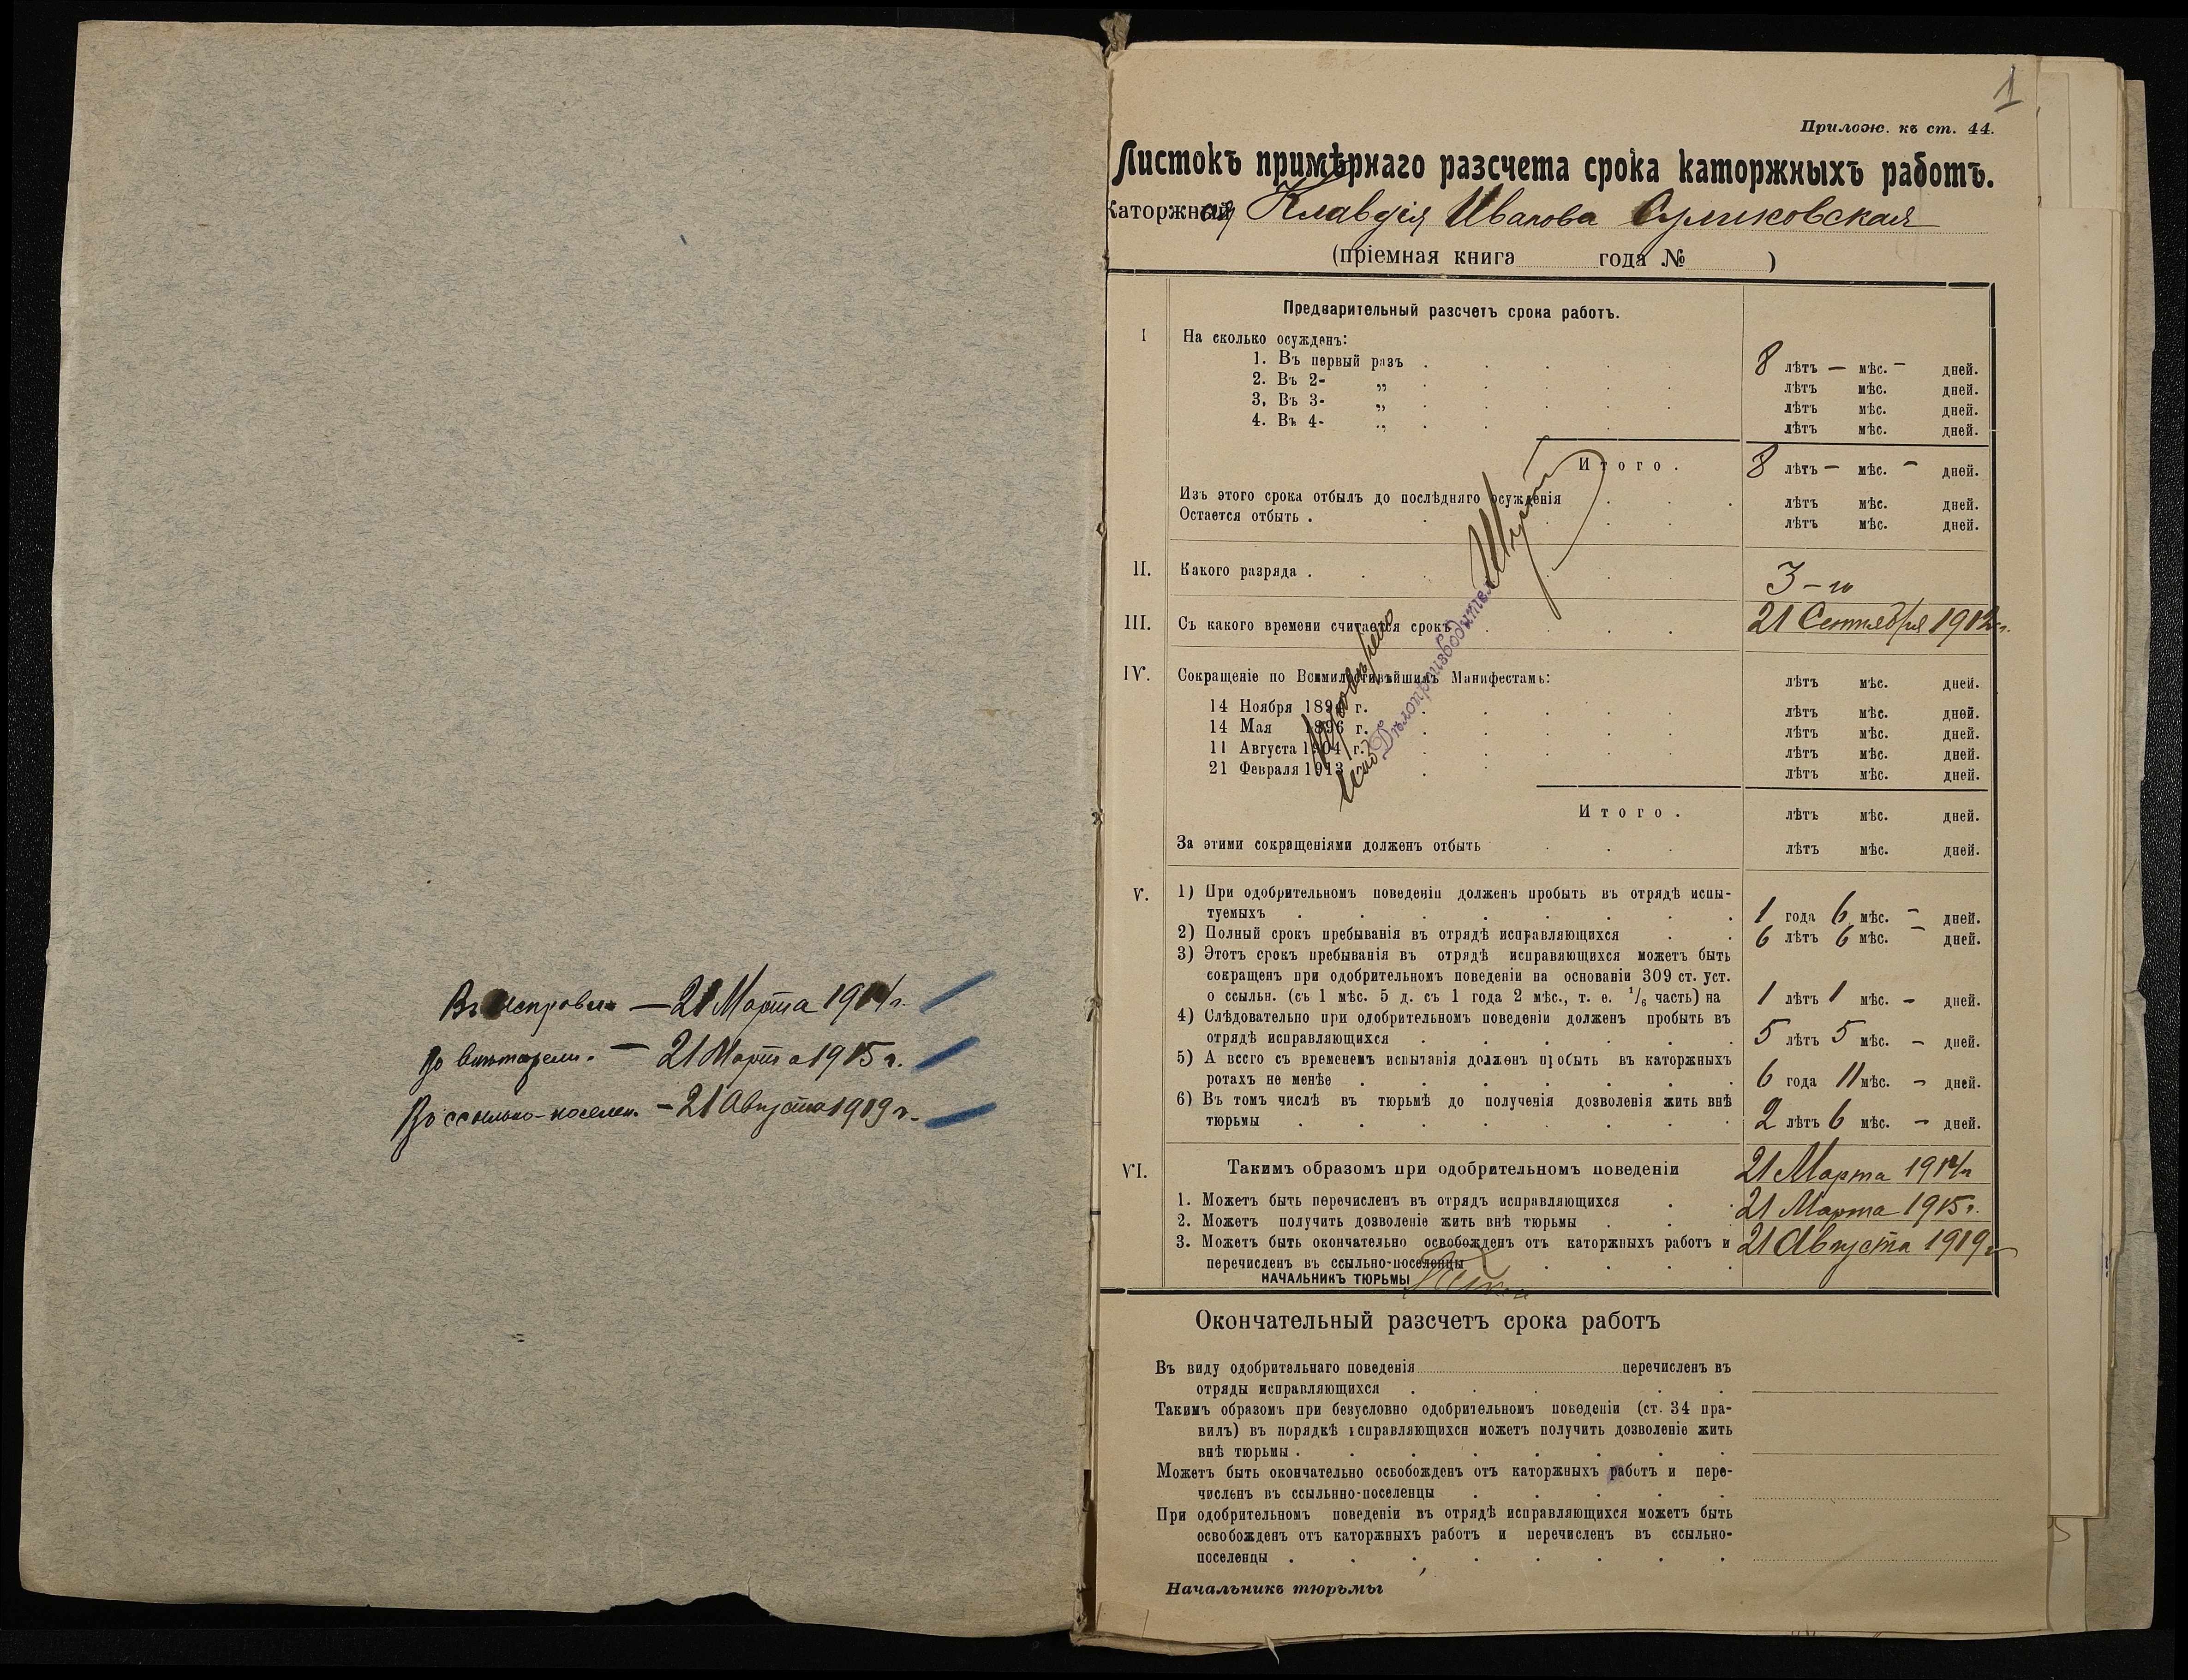 Въ исправл. — 21 Марта 1914 г.
Во внѣтюремн. — 21 Марта 1915 г.
Въ ссыльно-поселен. — 21 Августа 1919 г.
1
Прилож. къ ст. 44.
Листокъ примѣрнаго разсчета срока каторжныхъ работъ.
Каторжная Клавдія Иванова Суликовская
(пріемная книга года № )
Предварительный разсчетъ срока работъ.
I На сколько осужденъ:
1. Въ первый разъ . 8 лѣтъ — мѣс. — дней.
2. Въ 2- „ лѣтъ мѣс. дней.
3, Въ 3- „ лѣтъ мѣс. дней.
4. Въ 4- „ лѣтъ мѣс. дней.
Итого. 8 лѣтъ — мѣс. — дней.
Изъ этого срока отбылъ до послѣдняго осужденія лѣтъ мѣс. дней.
Остается отбыть . лѣтъ мѣс. дней.
II. Какого разряда . 3-го
III. Съ какого времени считается срокъ 21 Сентября 1912 г.
IV. Сокращеніе по Всемилостивѣйшимъ Манифестамъ: лѣтъ мѣс. дней.
14 Ноября 1894 г. лѣтъ мѣс. дней.
14 Мая 1896 г. лѣтъ мѣс. дней.
11 Августа 1904 г. лѣтъ мѣс. дней.
21 Февраля 1913 г. лѣтъ мѣс. дней.
Дѣлопроизводитель
Итого. лѣтъ мѣс. дней.
За этими сокращеніями долженъ отбыть лѣтъ мѣс. дней.
V. 1) При одобрительномъ поведеніи долженъ пробыть въ отрядѣ испы-
туемыхъ . 1 года 6 мѣс. — дней.
2) Полный срокъ пребыванія въ отрядѣ исправляющихся . 6 лѣтъ 6 мѣс. — дней.
3) Этотъ срокъ пребыванія въ отрядѣ исправляющихся можетъ быть
сокращенъ при одобрительномъ поведеніи на основаніи 309 ст. уст.
о ссыльн. (съ 1 мѣс. 5 д. съ 1 года 2 мѣс., т. е. 1/6 часть) на 1 лѣтъ 1 мѣс. — дней.
4) Слѣдовательно при одобрительномъ поведеніи долженъ пробыть въ
отрядѣ исправляющихся . 5 лѣтъ 5 мѣс. — дней.
5) А всего съ временемъ испытанія долженъ пробыть въ каторжныхъ
ротахъ не менѣе . 6 года 11 мѣс. — дней.
6) Въ томъ числѣ въ тюрьмѣ до полученія дозволенія жить внѣ
тюрьмы . 2 лѣтъ 6 мѣс. — дней.
VI. Такимъ образомъ при одобрительномъ поведеніи
1. Можетъ быть перечисленъ въ отрядъ исправляющихся . 21 Марта 1914 г.
2. Можетъ получить дозволеніе жить внѣ тюрьмы . 21 Марта 1915 г.
3. Можетъ быть окончательно освобожденъ отъ каторжныхъ работъ и 21 Августа 1919 г.
перечисленъ въ ссыльно-поселенцы
НАЧАЛЬНИКЪ ТЮРЬМЫ
Окончательный разсчетъ срока работъ
Въ виду одобрительнаго поведенія перечисленъ въ
отряды исправляющихся .
Такимъ образомъ при безусловно одобрительномъ поведеніи (ст. 34 пра-
вилъ) въ порядкѣ исправляющихся можетъ получить дозволеніе жить
внѣ тюрьмы .
Можетъ быть окончательно освобожденъ отъ каторжныхъ работъ и пере-
численъ въ ссыльнно-поселенцы .
При одобрительномъ поведеніи въ отрядѣ исправляющихся можетъ быть
освобожденъ отъ каторжныхъ работъ и перечисленъ въ ссыльно-
поселенцы .
Начальникъ тюрьмы